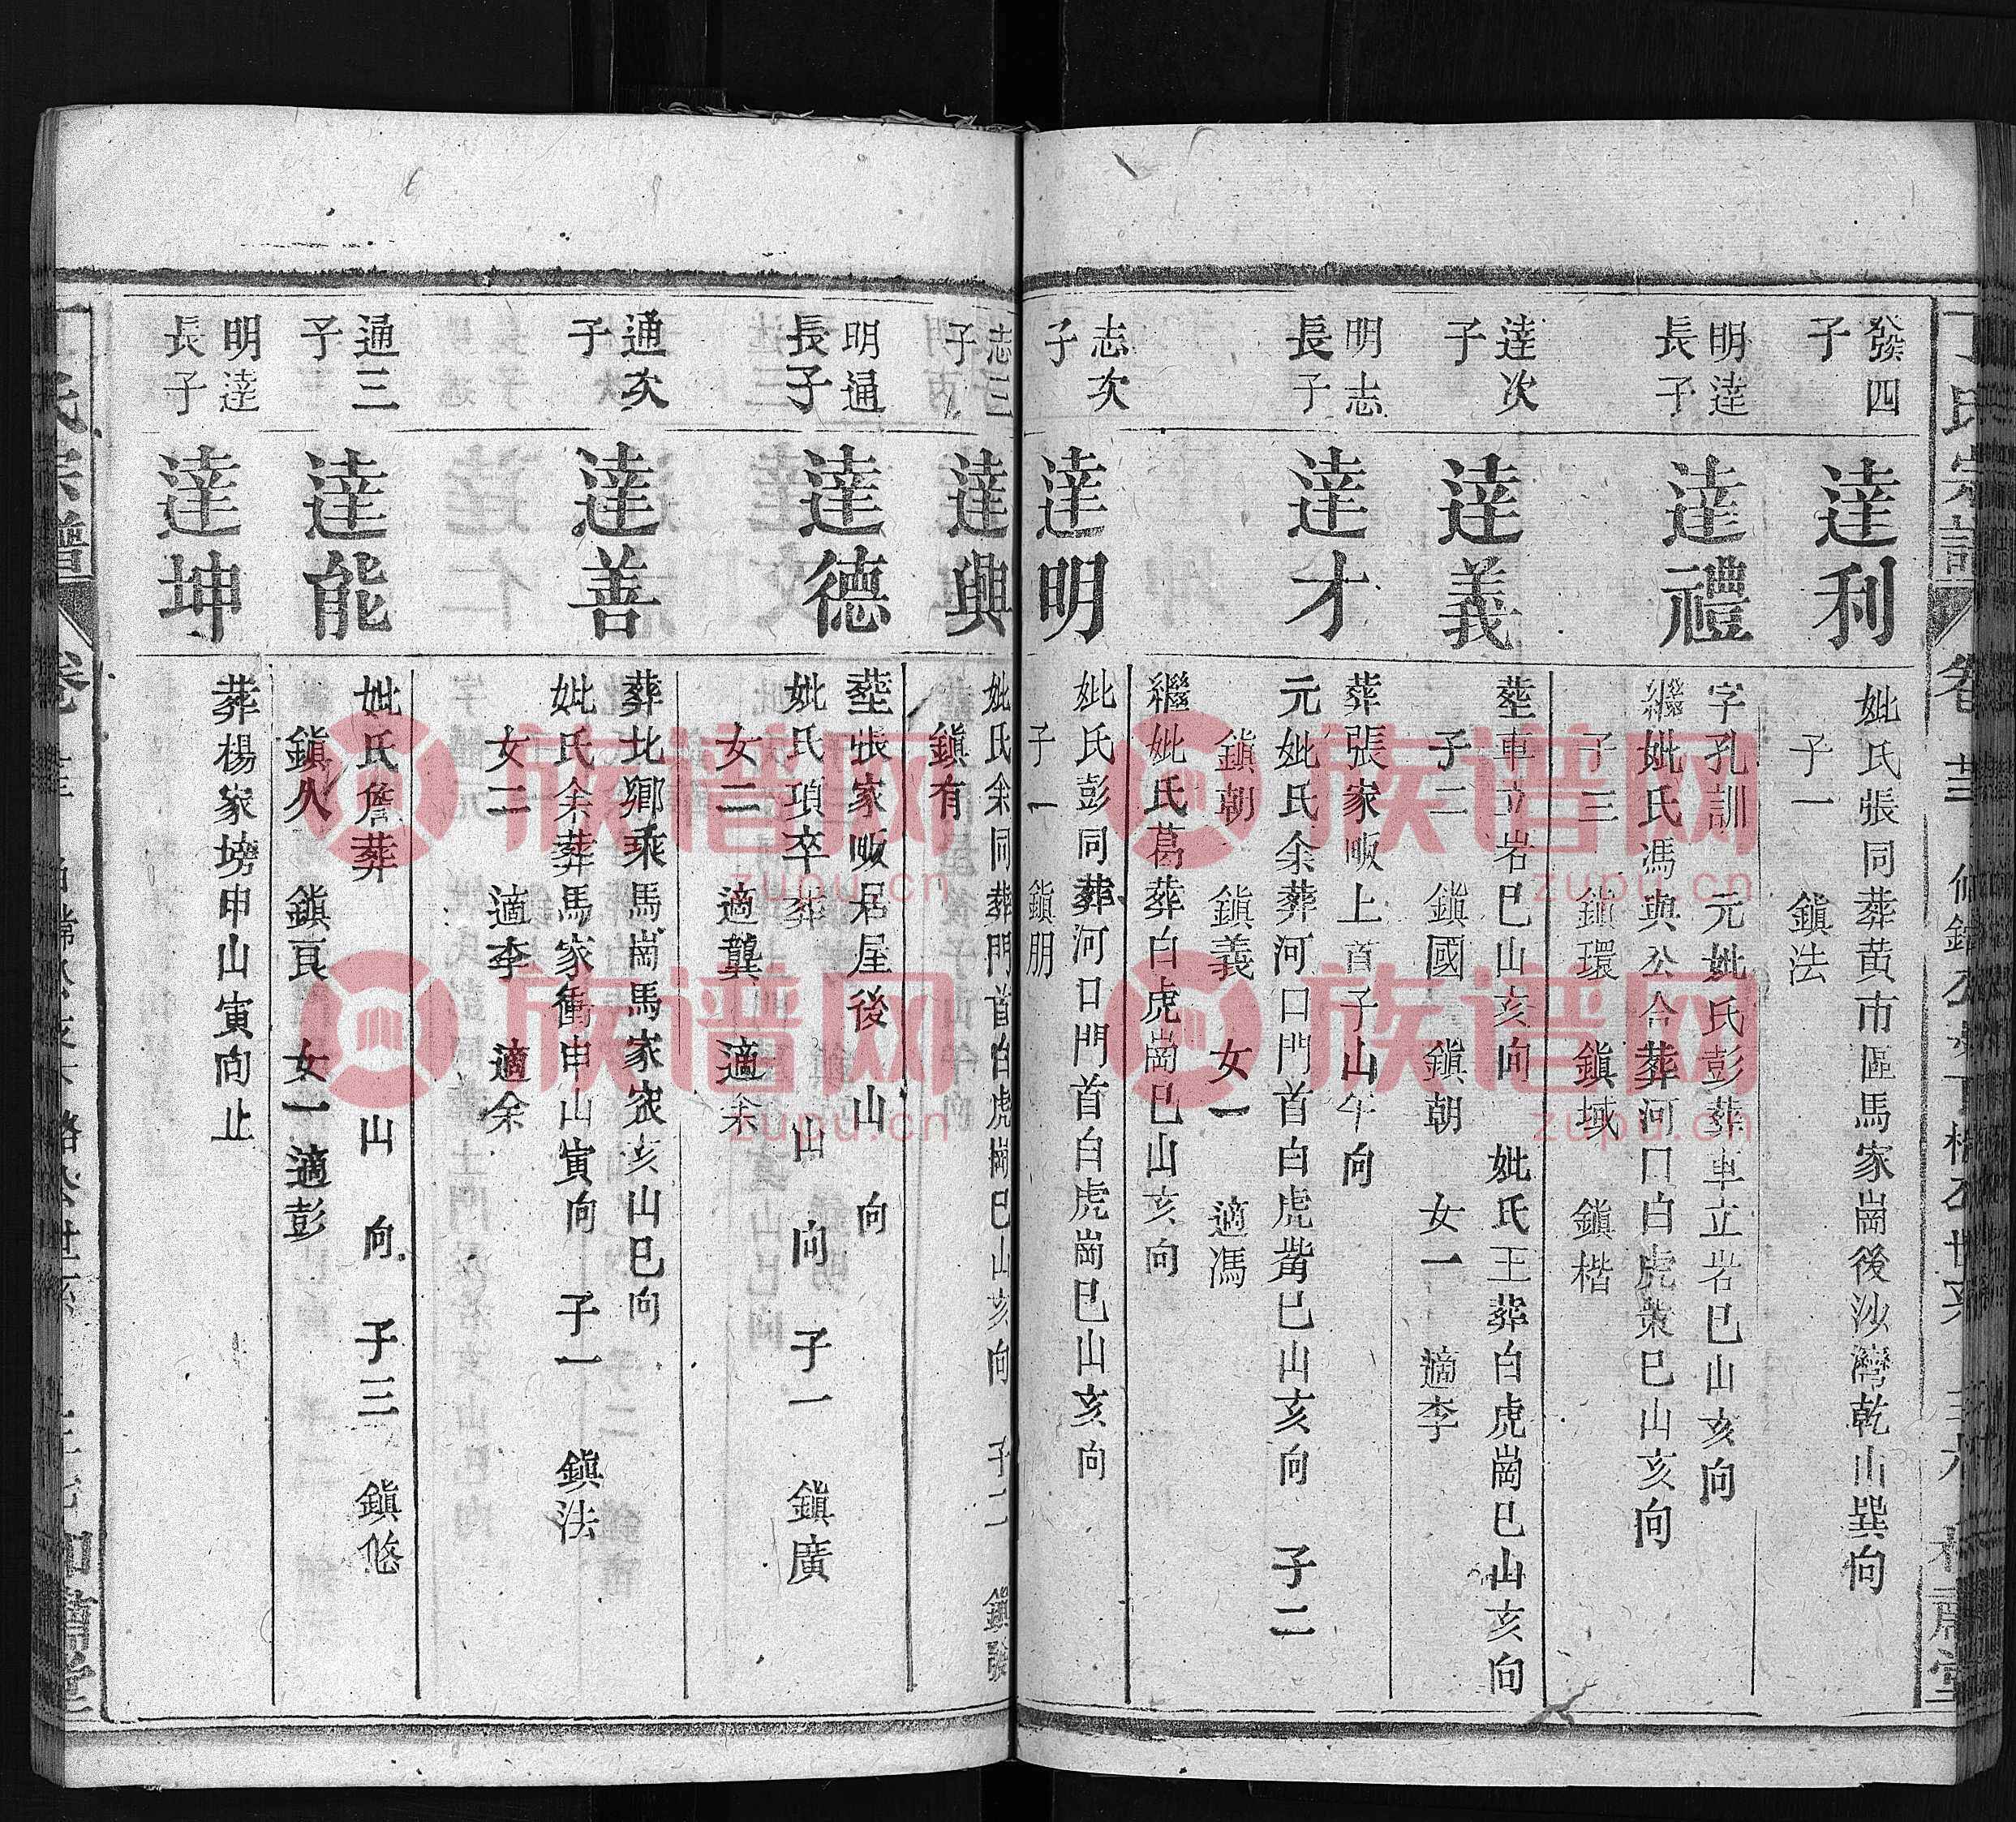 丁氏宗譜
發四
子
達利
妣氏張同葬黄市區馬家崗後沙灣乾山巽向
子一　鎭法
明達
長子
達禮
字孔訓　元妣氏彭葬車立岩巳山亥向
繼妣氏馮與公合葬河口白虎嘴巳山亥向
子三　鎭環　鎭域　鎭楷
達次
子
達義
塟車立岩巳山亥向　妣氏王葬白虎崗巳山亥向
子二　鎭國　鎭朝　女一　適李
明志
長子
達才
葬張家畈上首子山午向
元妣氏余葬河口門首白虎嘴巳山亥向　子二
鎭朝　鎭義　女一　適馮
繼妣氏葛葬白虎崗巳山亥向
志次
子
達明
妣氏彭同葬河口門首白虎崗巳山亥向
子一　鎭朋
志三
子
達興
妣氏余同葬門首白虎崗巳山亥向　子二　鎭發
鎭有
明通
長子
達德
塟張家畈居屋後　山　向
妣氏項卒葬　山　向　子一　鎭廣
女二　適龔　適余
通次
子
達善
葬北鄉乘馬崗馬家衮亥山巳向
妣氏余葬馬家衝申山寅向　子一　鎭法
女二　適李　適余
通三
子
達能
妣氏詹葬　山　向　子三　鎭悠
鎭久　鎭良　女一適彭
明達
長子
達坤
葬楊家塝申山寅向止
氏宗譜
族谱网
zupu.cn
族谱网
zupu.cn
族谱网
zupu.cn
族谱网
zupu.cn